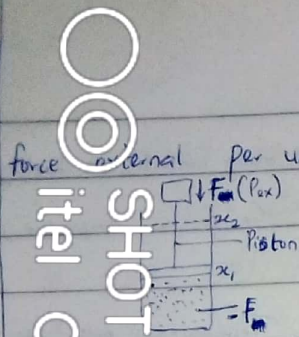 force external per u
F (Pex)
x2
Piston
x1
F
SHOT
itel